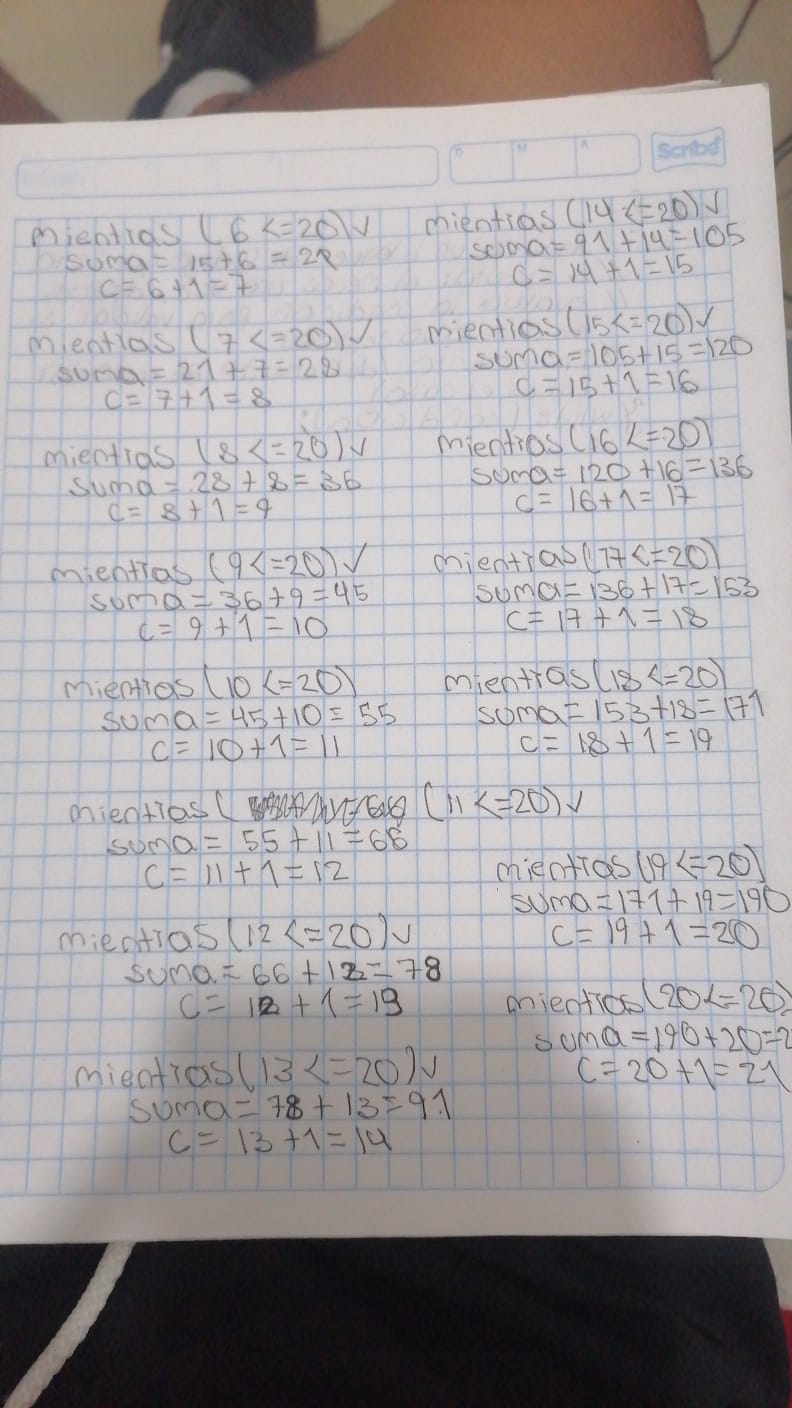 Scribe
D M A
mientras (6 <=20)✓
suma= 15+6 = 21
c= 6+1=7
mientras (7 <=20)✓
suma=21+7=28
c= 7+1=8
mientras (8 <=20)✓
suma=28+8=36
c= 8+1=9
mientras (9<=20)✓
suma=36+9=45
c= 9+1=10
mientras (10<=20)
suma=45+10=55
c= 10+1=11
mientras ( (11<=20)✓
suma= 55+11=66
c= 11+1=12
mientras (12<=20)✓
suma=66+12=78
c= 12+1=13
mientras(13<=20)✓
suma=78+13=91
c= 13+1=14
mientras (14<=20)✓
suma=91+14=105
c= 14+1=15
mientras(15<=20)✓
suma=105+15=120
c=15+1=16
mientras(16<=20)
suma=120+16=136
c= 16+1=17
mientras(17<=20)
suma=136+17=153
c=17+1=18
mientras(18<=20)
suma=153+18=171
c= 18+1=19
mientras(19<=20)
suma=171+19=190
c=19+1=20
mientras(20<=20)
suma=190+20=2
c=20+1=21